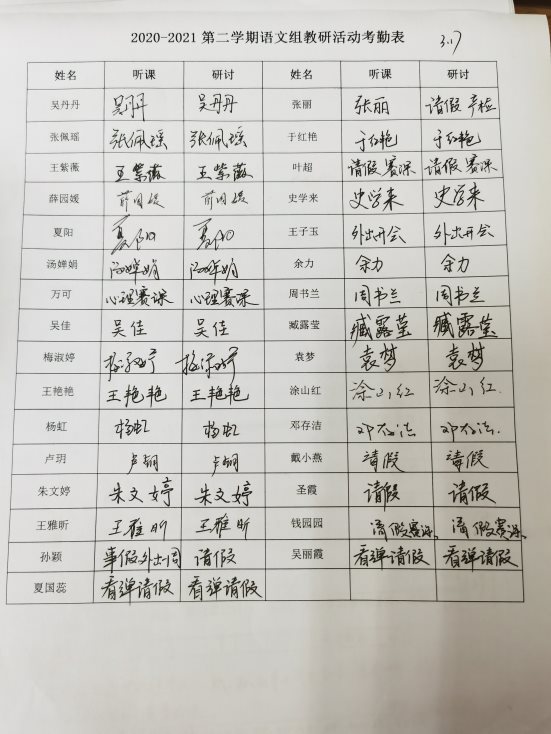 2020-2021 第二学期语文组教研活动考勤表
3.17
姓名 听课 研讨 姓名 听课 研讨
吴丹丹 吴丹丹 吴丹丹 张丽 张丽 请假 产检
张佩瑶 张佩瑶 张佩瑶 于红艳 于红艳 于红艳
王紫薇 王紫薇 王紫薇 叶超 请假 赛课 请假 赛课
薛园媛 薛园媛 薛园媛 史学来 史学来 史学来
夏阳 夏阳 夏阳 王子玉 外出开会 外出开会
汤婵娟 汤婵娟 汤婵娟 余力 余力 余力
万可 心理赛课 心理赛课 周书兰 周书兰 周书兰
吴佳 吴佳 吴佳 臧露莹 臧露莹 臧露莹
梅淑婷 梅淑婷 梅淑婷 袁梦 袁梦 袁梦
王艳艳 王艳艳 王艳艳 涂山红 涂山红 涂山红
杨虹 杨虹 杨虹 邓存洁 邓存洁 邓存洁
卢玥 卢玥 卢玥 戴小燕 请假 请假
朱文婷 朱文婷 朱文婷 圣霞 请假 请假
王雅昕 王雅昕 王雅昕 钱园园 请假赛课 请假赛课
孙颖 事假外出一周 请假 吴丽霞 看弹请假 看弹请假
夏国蕊 看弹请假 看弹请假